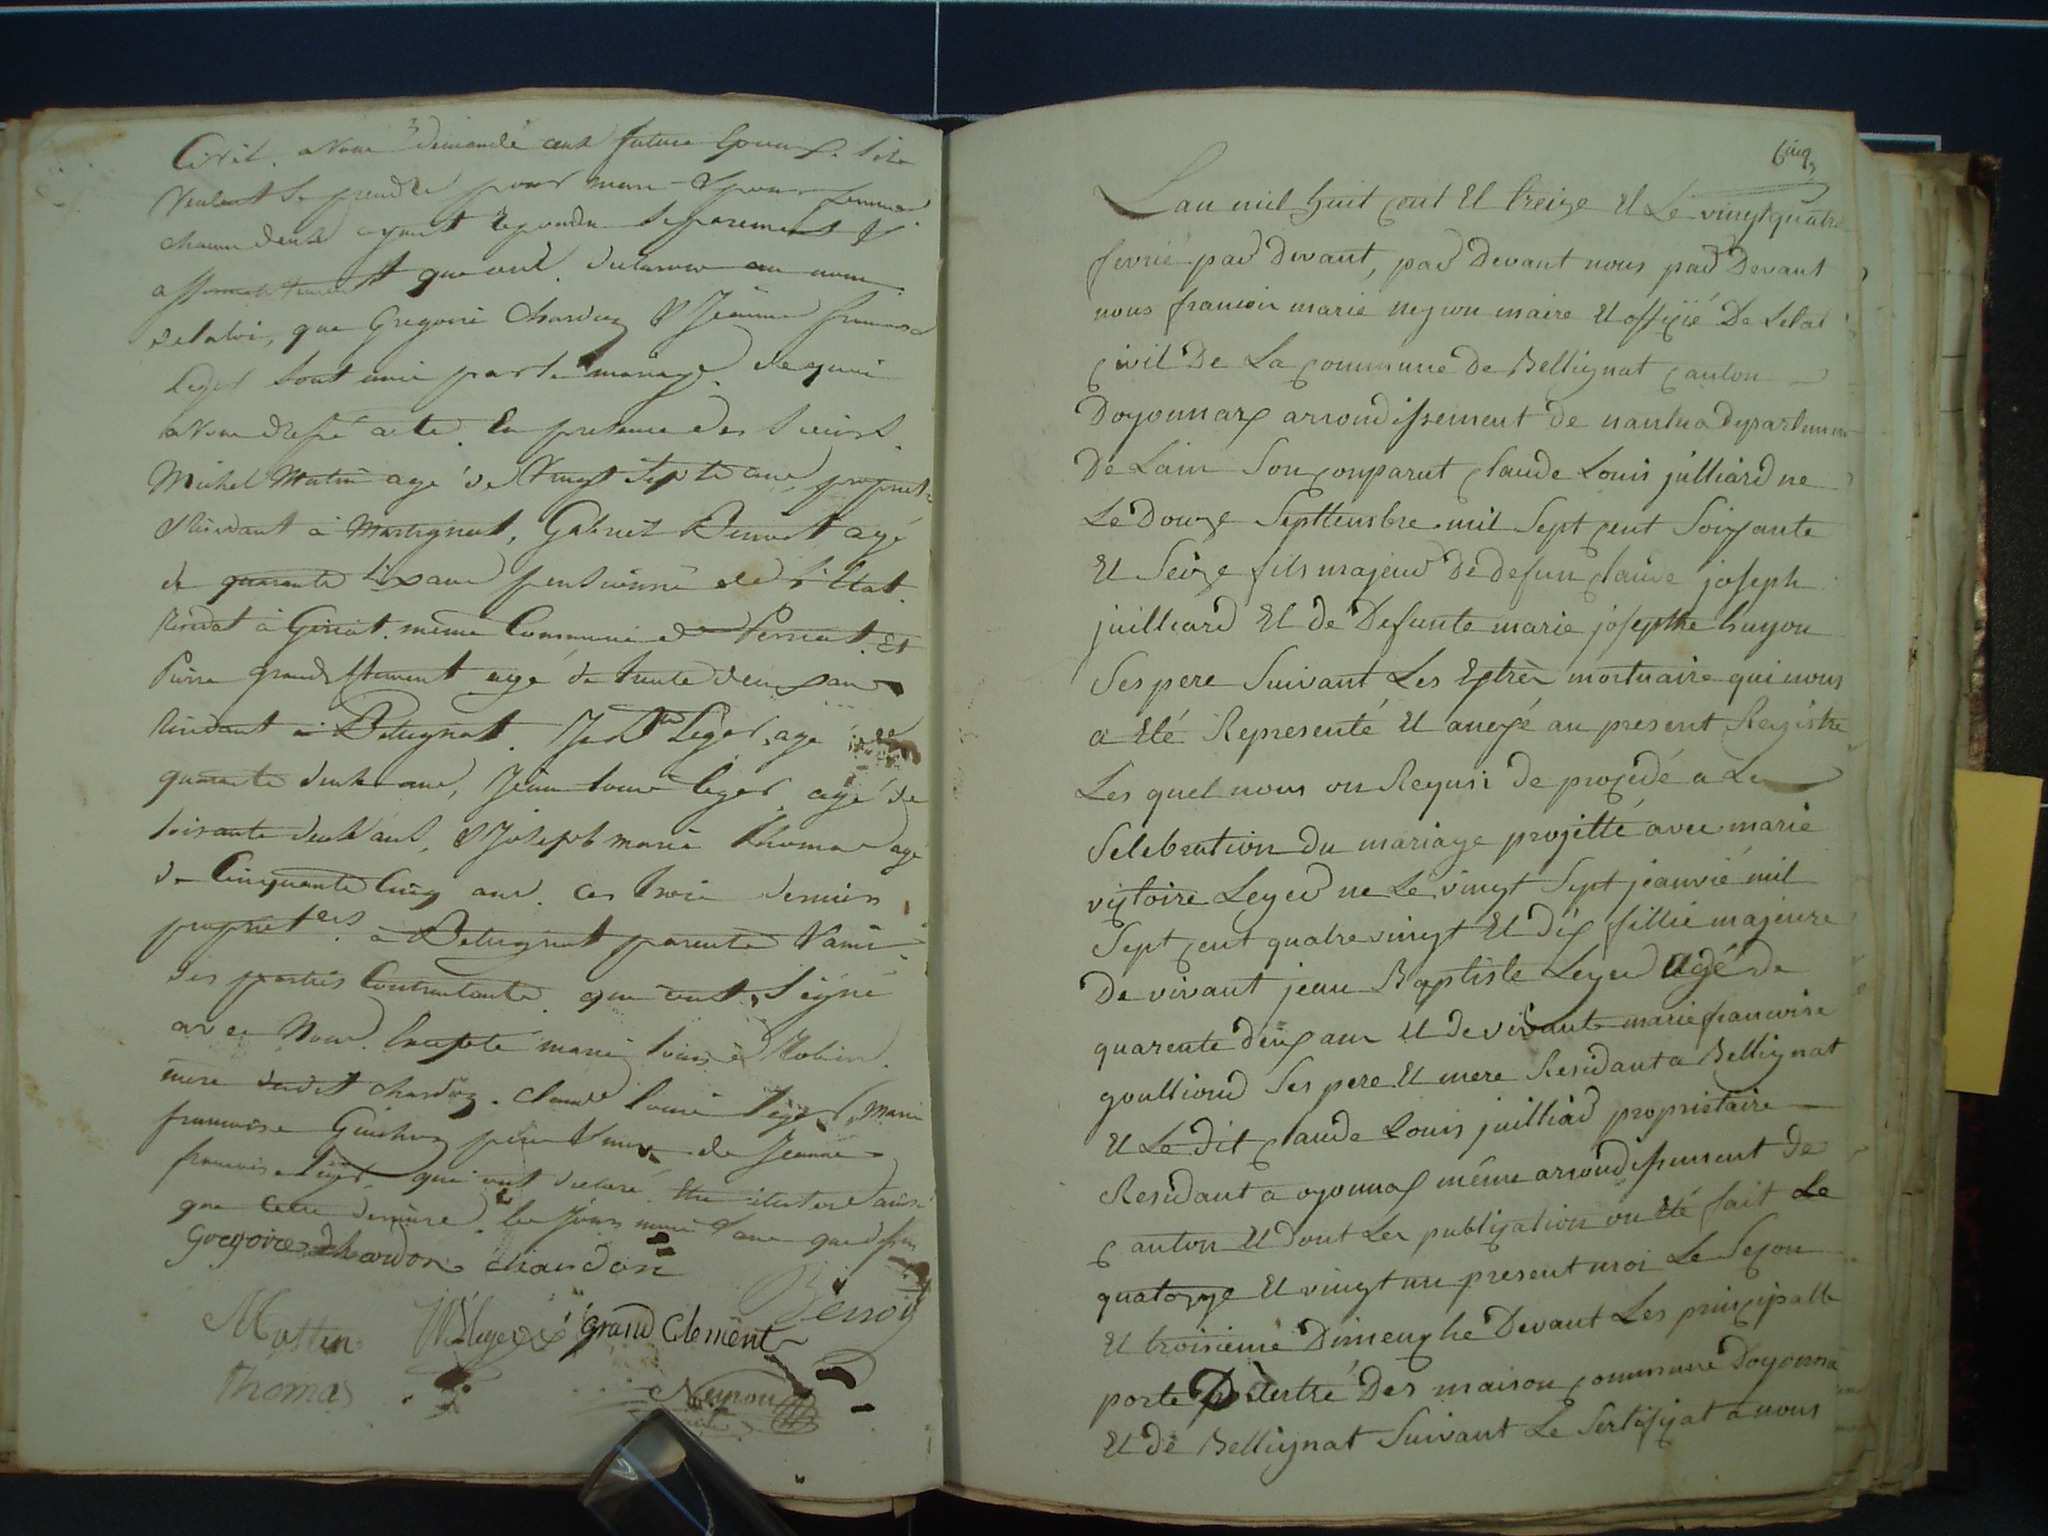 Civil. avons demandé aux futurs Epoux. S'ils
veulent se prendre pour mari & pour femme
chacun d'eux ayant repondu Separement &
affirmativement que oui. declarons au nom
de la loi, que Gregoire Chardon & Jeanne francoise
Leger sont unis par le mariage. de quoi
avons dressé acte. En presence des Sieurs
Michel Mutin agé de vingt sept ans, propriet.
Residant à Martignat, Gabriel Benoit agé
de quarante six ans pensionné de l'Etat.
Residat à Geniat. même Commune de Et
Pierre grand Clement agé de trente deux ans
Residant à Belignat. Jean Bte Leger, agé de
quarante deux ans, Jean Louis leger agé de
soixante deux ans, & Joseph marie thomas agé
de Cinquante Cinq ans. ces trois derniers
propriet.ers à Belignat parents & amis
des parties Contractante. que ont Signé
avec Nous. Excepté marie Robin.
mere dudit chardon. claude Louis leger, & Marie
francoise pere & mere de Jeanne
francoise Leger. qui ont declaré Etre iliterés ainsi
que cette derniere. les Jours mois & an que dessus
Gregoire chardon chardon
Benoit
Mutin Leger grand Clement
Thomas
Neyron
maire
Cinq
Lan mil huit cent Et treize Et Le vingt quatre
fevrié par devant, par Devant nous par Devant
nous francoir marie neyron maire Et offisié De Letat
civil De La commune de Bellignat canton
Doyonnax arrondissement de nantua departement
De Lain Son conparut claude Louis julliard ne
Le Douze Septtensbre mil Sept cent Soixante
Et Seize fils majeur De defun claude joseph
juilliard Et de Defunte marie josephte huyon
Ses pere Suivant Les Extrès mortuaire qui nous
a Eté Representé Et anexé au present Registre
Les quel nous on Requsi de procédé a La
Selebration du mariage projetté avec marie
victoire Leger ne Le vingt Sept jeanvié mil
Sept cent quatre vingt Et dix fillie majeure
De vivant jean Baptiste Leger agé de
quarente deux anx Et de vivante marie francoise
goultioud Ses pere Et mere Residant a Bellignat
Et Le dit claude Louis juilliad proprietaire
Residant a oyonnax même arrondissement de
canton Et dont Les publication on Eté fait Le
quatorze Et vingt un present moi Le Segon
Et troisieme Dimenche Devant Les principalle
porte Des maison commune Doyonna
Et de Bellignat Suivant Le Sertificat a nous